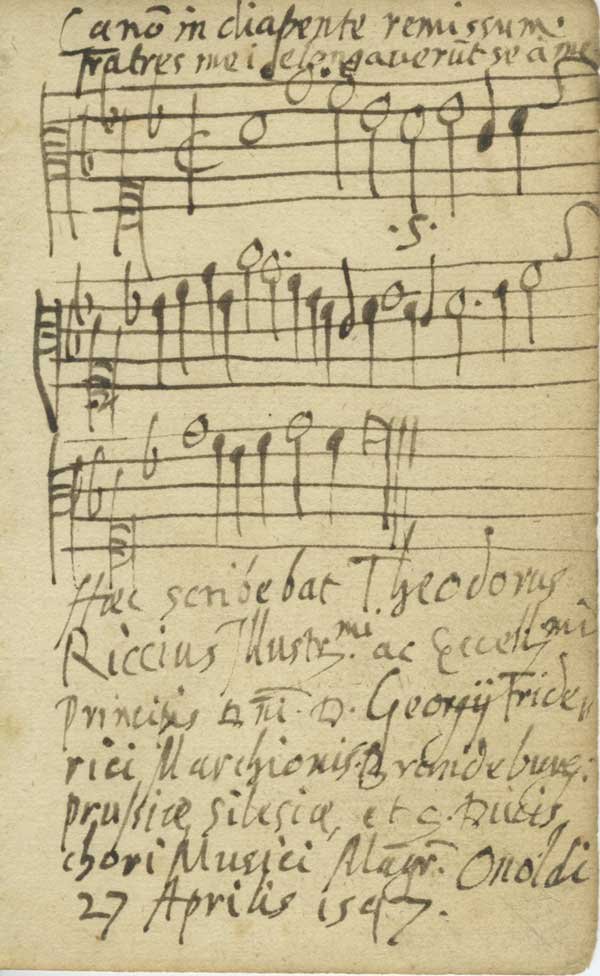 Canō in diapente remissum.
Fratres mei elongaverūt se à me
.S.
Haec scribebat Theodorus
Riccius Illustr.mi ac Excell.mi
Principis Dni. D. Georgij Fride,
rici Marchionis Brandeburg:
prussiæ, silesiæ, etc. Ducis
chori Musici Magr. Onoldi
27 Aprilis 1597.